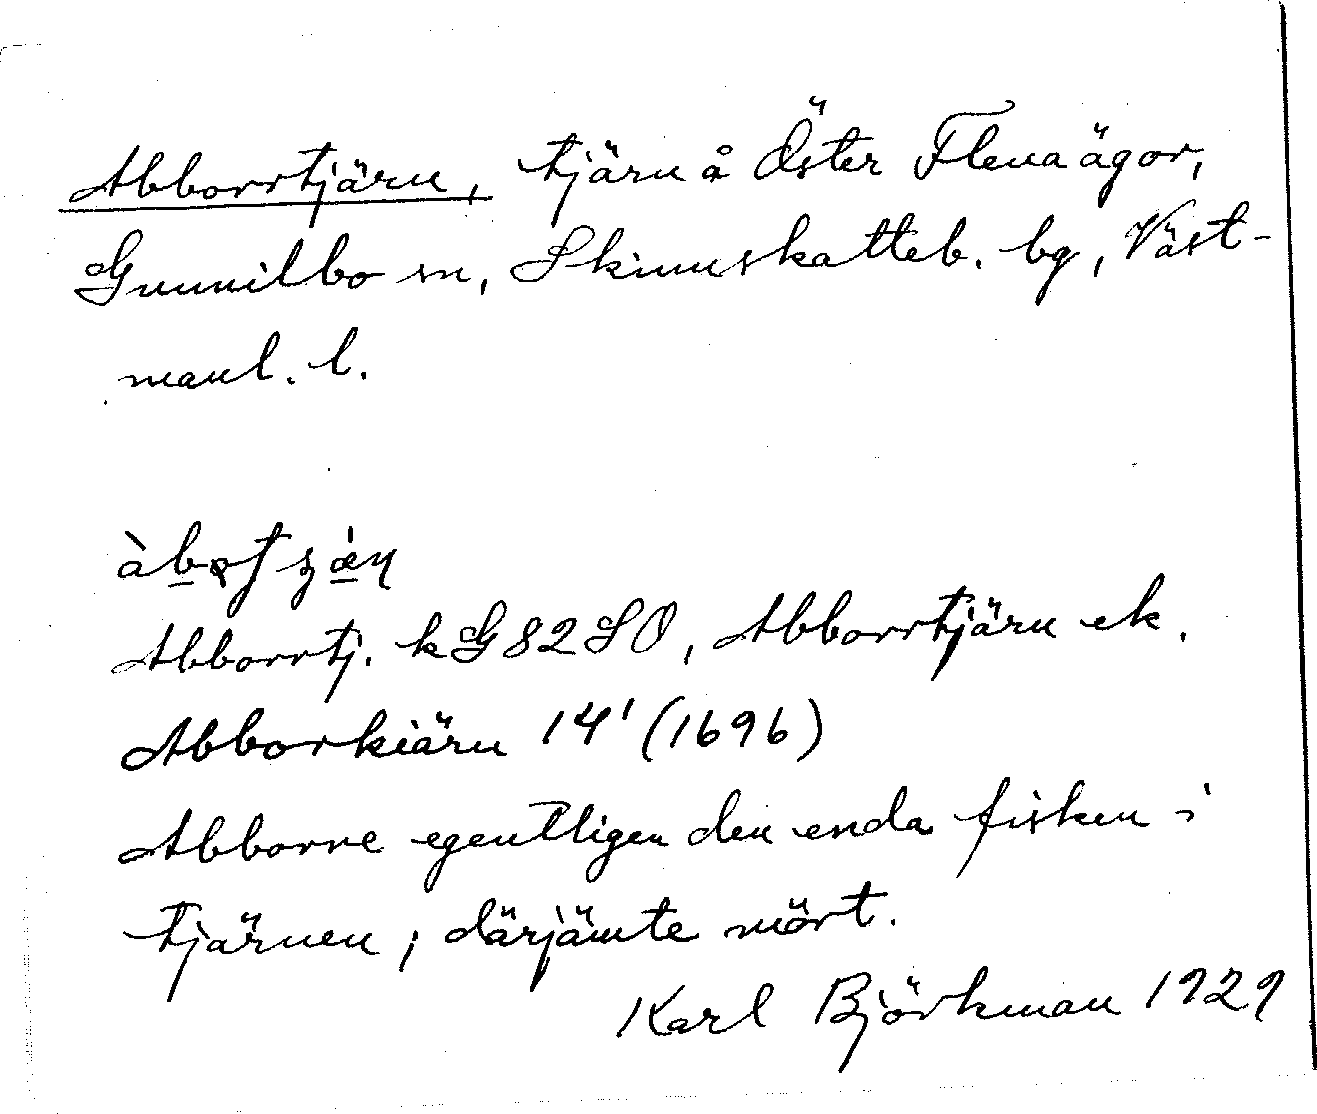 Abborrtjärn, tjärn å Öster Flena ägor,
Gunnilbo sn, Skinnskatteb. bg, Väst-
manl. l.
Abborrtj. k G 82 SO, Abborrtjärn ek.
Abborkiärn 14' (1696)
Abborre egentligen den enda fisken i
tjärnen; därjämte mört.
Karl Björkman 1929